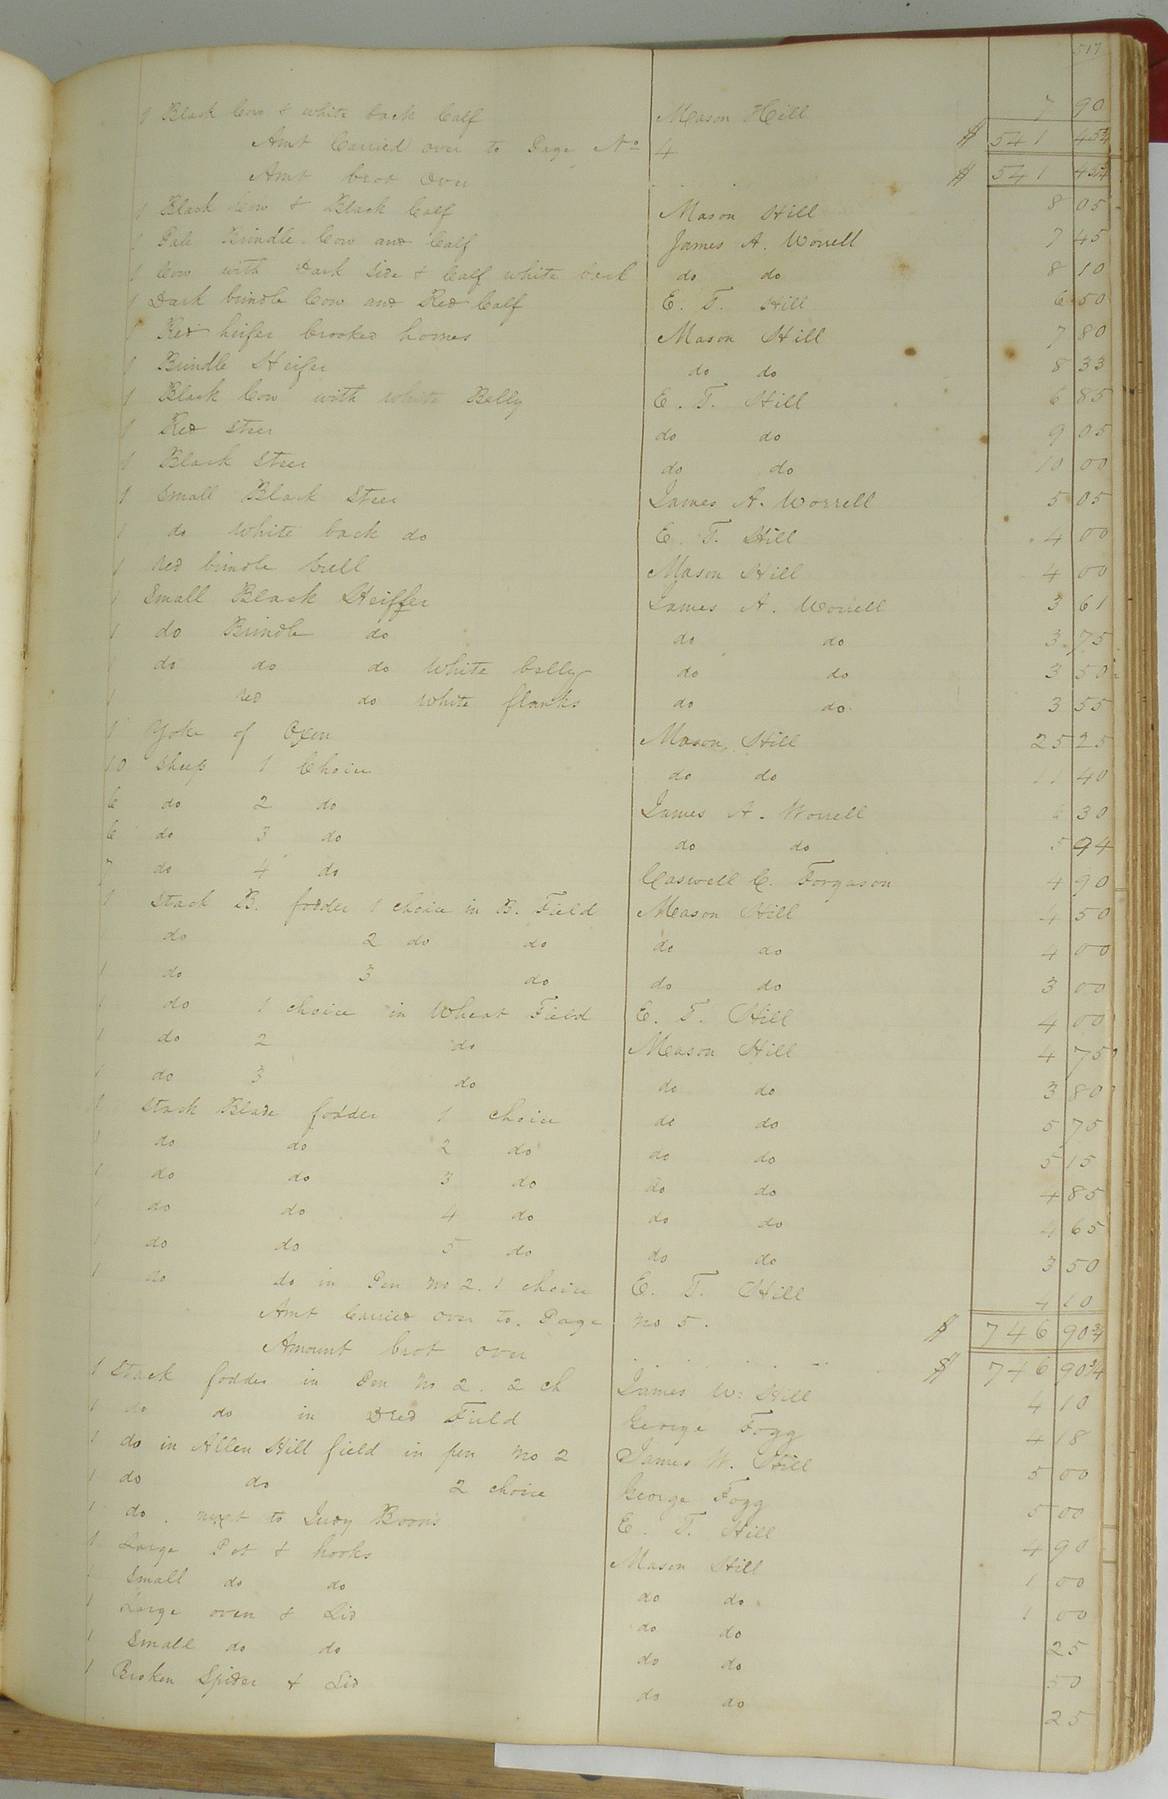 517
1 Black Cow & white back Calf Mason Hill 7 90
Amt Carried over to Page No 4 $ 541 45¾
Amt brot Over $ 541 45¾
1 Black Cow & Black Calf Mason Hill 8 05
1 Pale Brindle Cow and Calf James A. Worrell 7 45
1 Cow with Dark Side & Calf white back do do 8 10
1 Dark brindle Cow and Red Calf E. T. Hill 6 50
1 Red heifer Crooked hornes Mason Hill 7 80
1 Brindle Heifer do do 8 33
1 Black Cow with white Belly E. T. Hill 6 85
1 Red Steer do do 9 05
1 Black Steer do do 10 00
1 Small Black Steer James A. Worrell 5 05
1 do White back do E. T. Hill 4 00
1 red brindle bull Mason Hill 4 00
1 Small Black Heiffer James A. Worrell 3 61
1 do Brindle do do do 3 75
1 do do do White belly do do 3 50
1 red do white flanks do do 3 55
1 Yoke of Oxen Mason Hill 25 25
10 Sheep 1 Choice do do 11 40
6 do 2 do James A. Worrell 6 30
6 do 3 do do do 5 94
7 do 4 do Caswell C. Forgason 4 90
1 Stack B. fodder 1 choice in B. Field Mason Hill 4 50
do 2 do do do do 4 00
1 do 3 do do do 3 00
1 do 1 choice in Wheat Field E. T. Hill 4 00
1 do 2 do Mason Hill 4 75
1 do 3 do do do 3 80
1 Stack Blade fodder 1 choice do do 5 75
1 do do 2 do do do 5 15
1 do do 3 do do do 4 85
1 do do 4 do do do 4 65
1 do do 5 do do do 3 50
1 do do in Pen No 2. 1 choice E. T. Hill 4 10
Amt Carried over to Page No 5. $ 746 90¾
Amount brot over $ 746 90¾
1 Stack fodder in Pen No 2. 2 ch James W. Hill 4 10
1 do do in Field George Fogg 4 18
1 do in Allen Hill field in pen No 2 James W. Hill 5 00
1 do do 2 choice George Fogg 5 00
1 do. next to Judy Boon's E. T. Hill 4 90
1 Large Pot & hooks Mason Hill 1 00
1 Small do do do do 1 00
1 Large oven & Lid do do 25
1 Small do do do do 50
1 Broken Spider & Lid do do 25